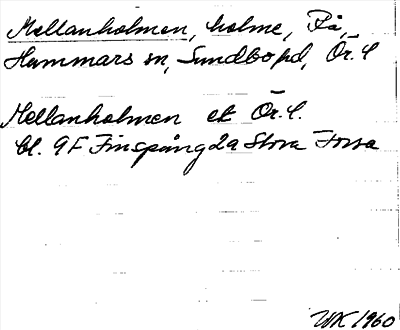 Mellanholmen, holme, På,
Hammars sn, Sundbo hd, Ör. l
Mellanholmen ek Ör. l.
bl. 9F Finspång 2a Stora Forsa
WK 1960